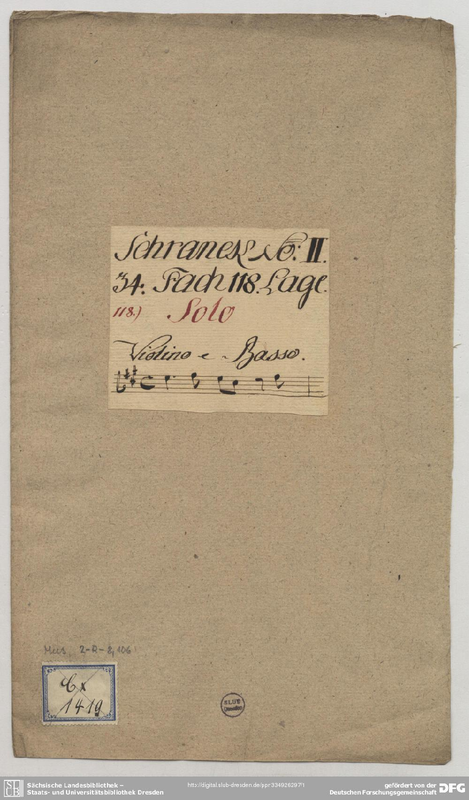 Schranck No: II.
34: Fach 118. Lage.
118.) Solo
Violino e Basso.
Mus. 2-R-8,106
Cx
1419
SLUB
Dresden
Sächsische Landesbibliothek –
Staats- und Universitätsbibliothek Dresden
gefördert von der
Deutschen Forschungsgemeinschaft
DFG